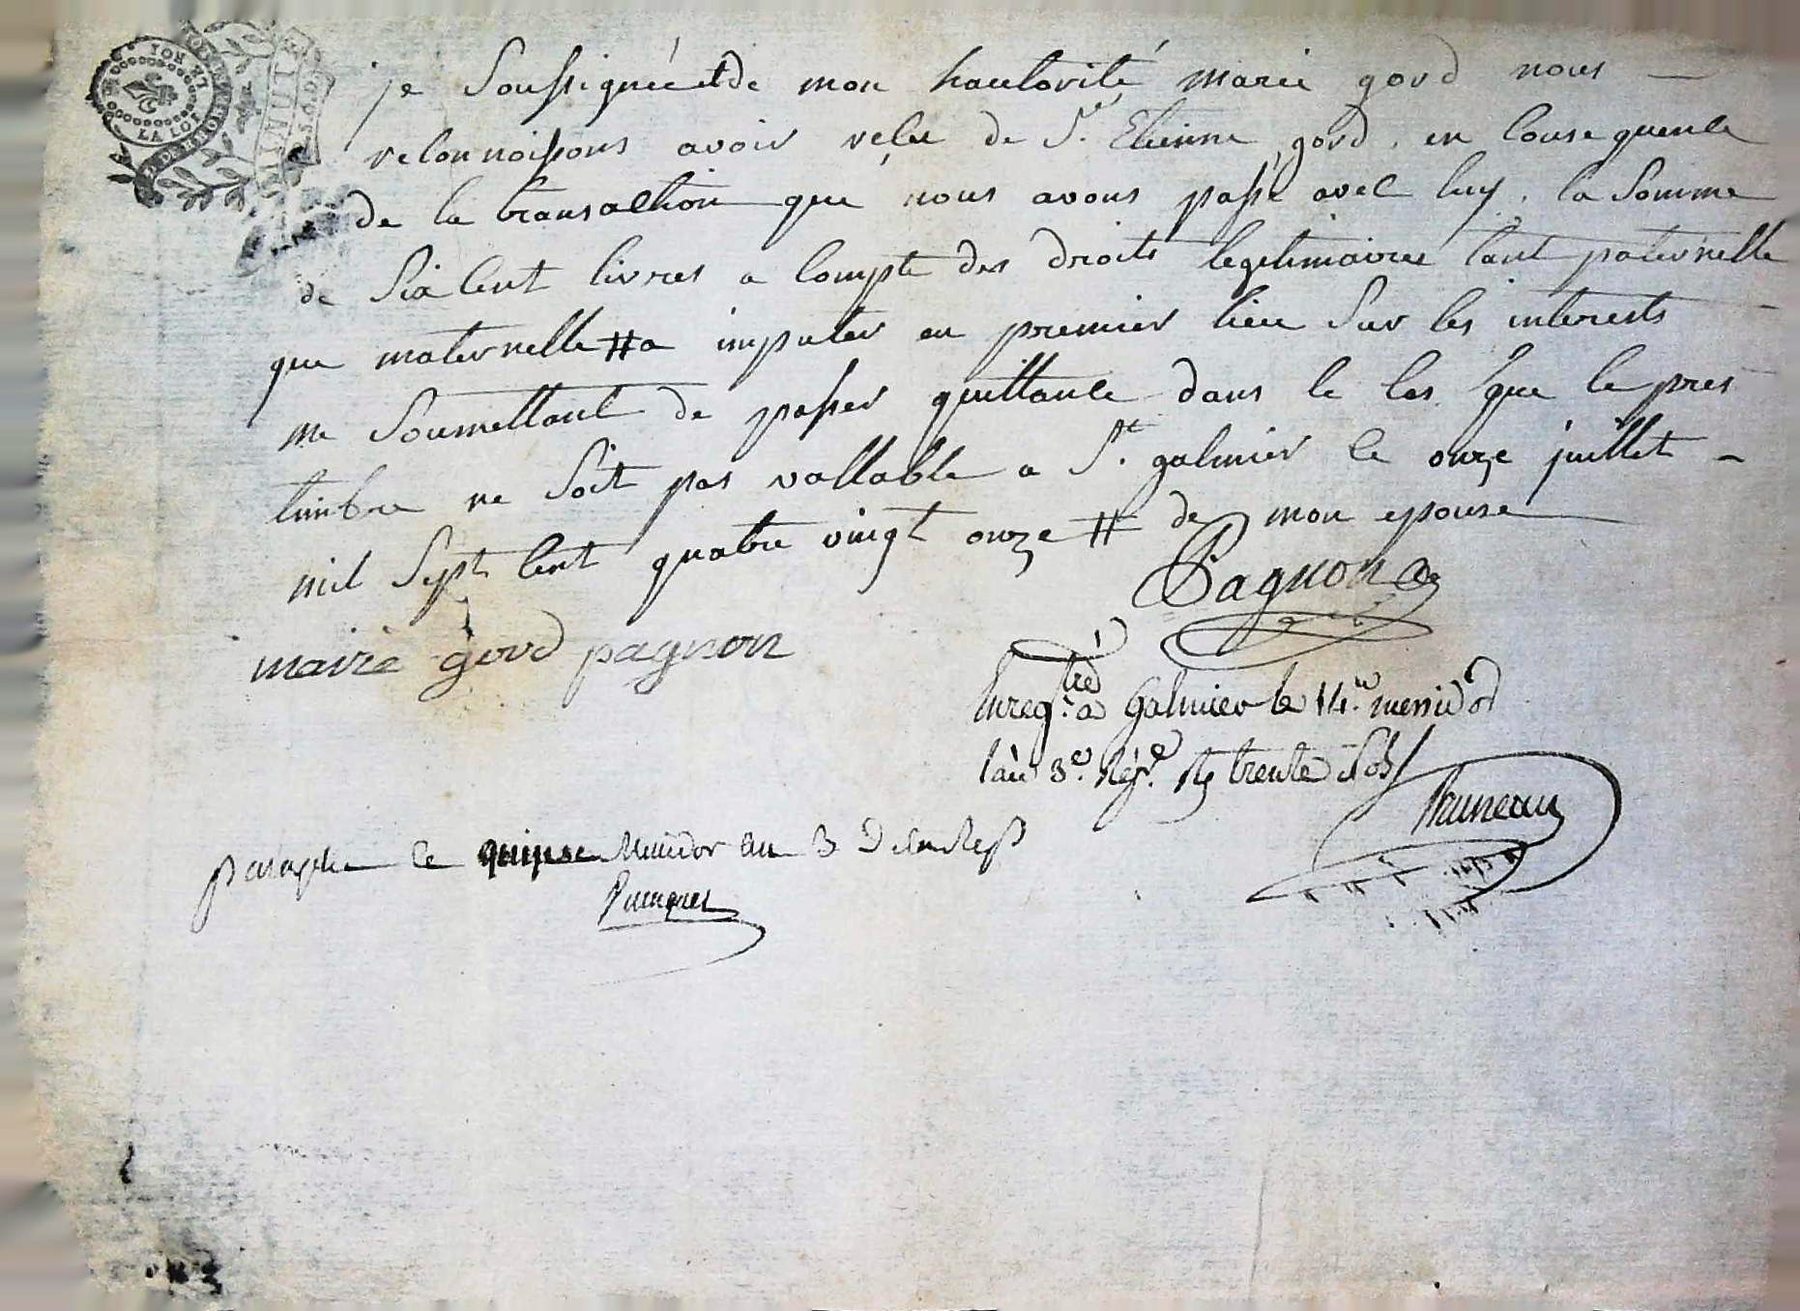 LA LOI
je soussignée et de mon hauctorité marie gord nous —
reconnoissons avoir reçu de Sr. Etienne gord, en consequence
de la transaction que nous avons passé avec luy, la somme
de Six cent livres a compte des droits legitimaires tant paternelle
que maternelle # a imputer en premier lieu sur les interests
me soumettant de passer quittance dans le cas que le pres
timbre ne soit pas vallable a St. galmier le onze juillet —
mil sept cent quatre vingt onze # de mon epouse
Pagnon
marie gord pagnon
Enregtré a Galmier le 14. messidor
l'an 3e. Rep. trente sols
Bruneau
paraphé ce quinze Messidor an 3